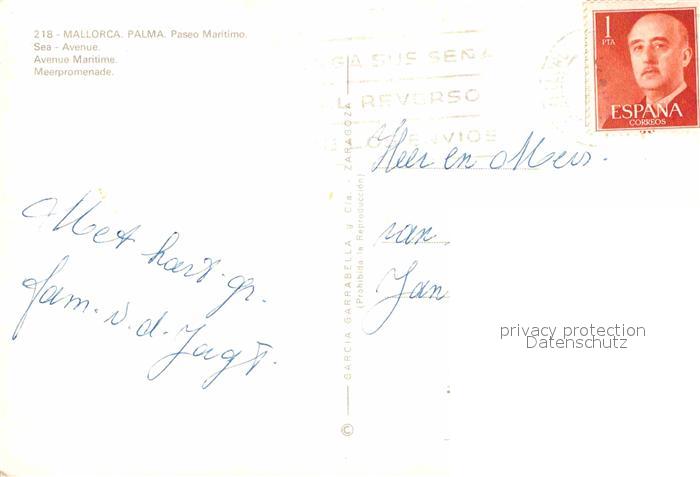 218 - MALLORCA. PALMA. Paseo Marítimo.
Sea - Avenue.
Avenue Maritime.
Meerpromenade.
Met hart. gr.
fam. v. d. Jagt.
GARCIA GARRABELLA y Cía. - ZARAGOZA
(Prohibida la Reproducción)
©
SUS SEÑA
REVERSO
ENVIOS
1
PTA
ESPAÑA
CORREOS
Heer en Mevr.
van
Jan
privacy protection
Datenschutz